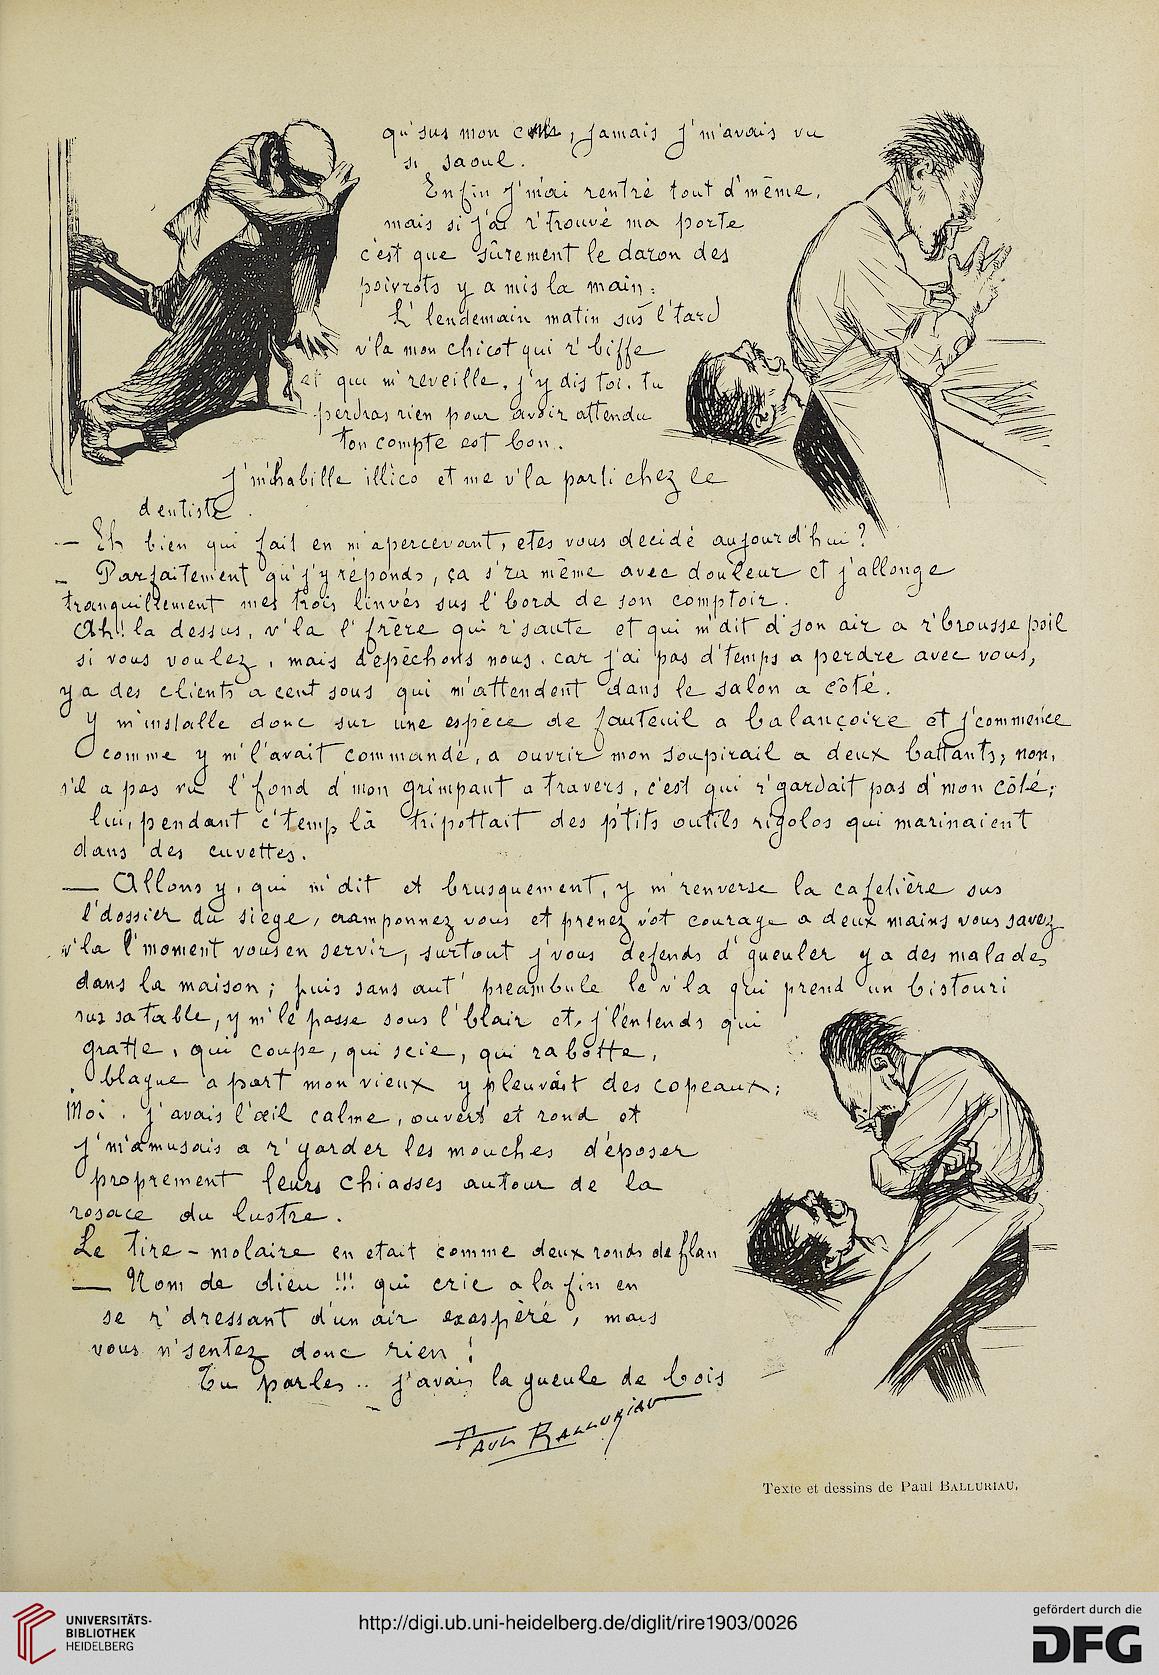 qu'sus mon , jamais j'm'avais vu
si saoul.
Enfin j'm'ai rentré tout d'même,
mais si j'ai r'trouvé ma porte
c'est que sûrement le daron des
poivrots y a mis la main :
L' lendemain matin sus l'tard
v'la mon chicot qui r'biffe
et qui m'reveille. j'y dis toi. tu
perdras rien pour avoir attendu
ton compte est bon.
J'm'habille illico et me v'la parti chez le
dentiste.
— Eh bien qui fait en m'apercevant, etes vous decidé aujourd'hui ?
— Parfaitement qu'j'y réponds, ça s'ra même avec douleur et j'allonge
tranquillement mes trois linvés sus l'bord de son comptoir.
Ah!! la dessus, v'la l'frère qui r'saute et qui m'dit d'son air a r'brousse poil
si vous voulez, mais dépêchons nous. car j'ai pas d'temps a perdre avec vous,
y a des clients a cent sous qui m'attendent dans le salon a côté.
Y m'installe donc sur une espèce de fauteuil a balançoire et j'commence
comme y m'l'avait commandé, a ouvrir mon soupirail a deux battants, non,
s'il a pas vu l'fond d'mon grimpant a travers, c'est qui r'gardait pas d'mon côté;
lui, pendant c'temps là tripottait des p'tits outils rigolos qui marinaient
dans des cuvettes.
— Allons y, qui m'dit et brusquement, y m'renverse la cafetière sus
l'dossier du siège, cramponnez vous et prenez vot courage a deux mains vous savez
v'la l'moment vous en servir, surtout j'vous defends d'gueuler y a des malades
dans la maison ; puis sans aut' preambule le v'la qui prend un bistouri
sur sa table, y m'le passe sous l'blair et, j'l'entends qui
gratte, qui coupe, qui scie, qui rabotte,
blague a part mon vieux y pleuvait des copeaux ;
Moi, j'avais l'œil calme, ouvert et rond et
j'm'amusais a r'garder les mouches déposer
proprement leurs chiasses autour de la
rosace du lustre.
Le tire-molaire en etait comme deux ronds de flan
— Nom de dieu !!! qui crie a la fin en
se r'dressant d'un air exaspéré, mais
vous n'sentez donc rien !
Tu parles .. j'avais la gueule de bois
Paul Balluriau
Texte et dessins de Paul BALLURIAU.
UNIVERSITÄTS-
BIBLIOTHEK
HEIDELBERG
http://digi.ub.uni-heidelberg.de/diglit/rire1903/0026
gefördert durch die
DFG